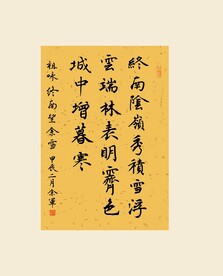 終南陰嶺秀積雪浮
雲端林表明霽色
城中增暮寒
祖咏終南望余雪 甲辰二月余軍